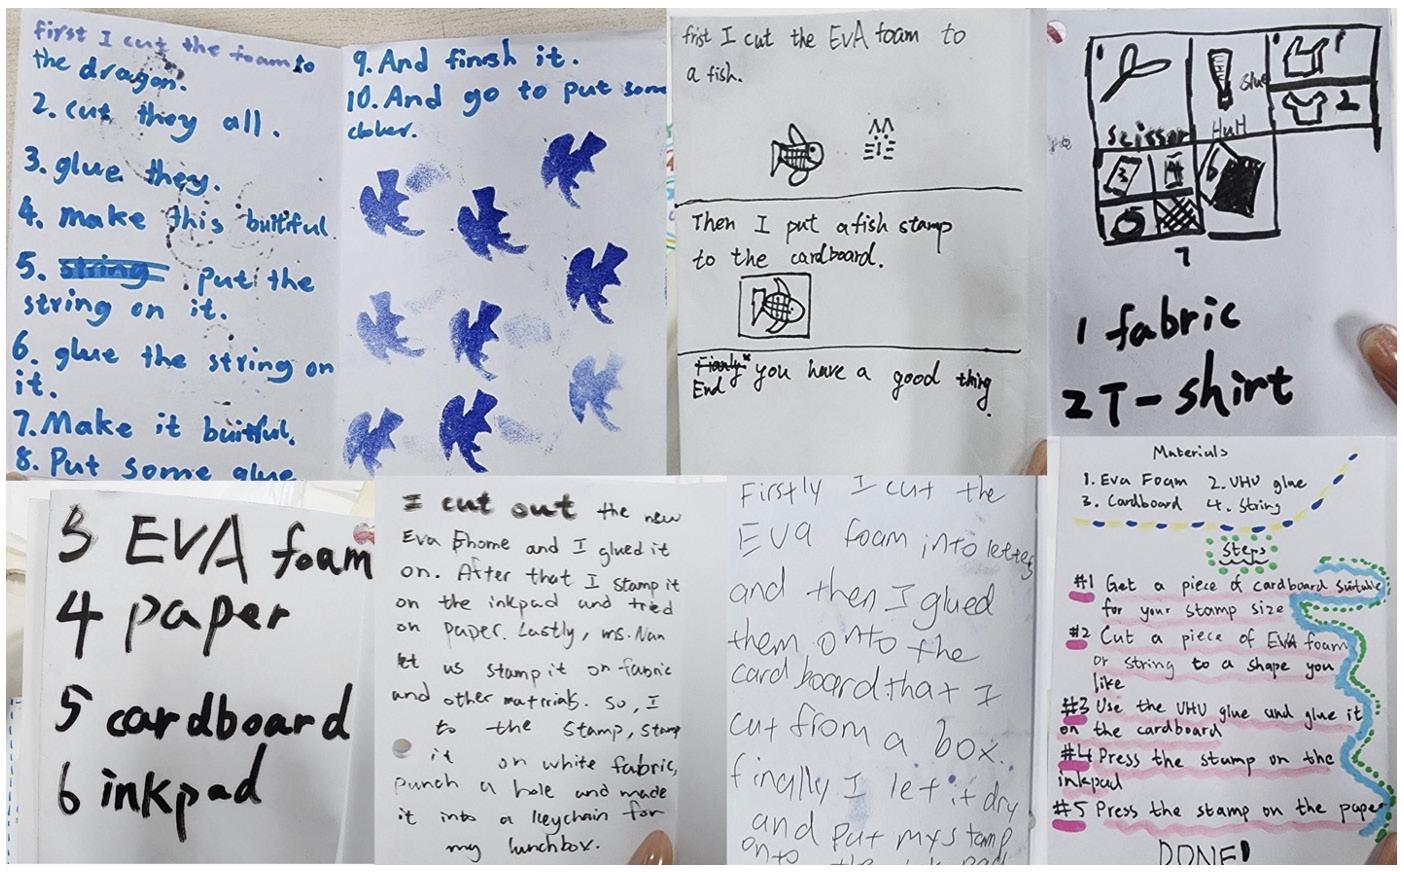 first I cut the foam to
the dragon.
2. cut they all.
3. glue they.
4. make this buitiful
5. string put the
string on it.
6. glue the string on
it.
7. Make it buitful.
8. Put some glue
9. And finish it.
10. And go to put som
frist I cut the EVA foam to
a fish.
Then I put a fish stamp
to the cardboard.
End you have a good thing
scissor
glue
HuH
1
2
3
5
6
7
1 fabric
2 T-shirt
3 EVA foam
4 paper
5 cardboard
6 inkpad
I cut out the new
Eva Fhome and I glued it
on. After that I stamp it
on the inkpad and tried
on paper. Lastly, ms. Nan
let us stamp it on fabric
and other matrials. So, I
to the stamp, stamp
it on white fabric,
punch a hole and made
it into a keychain for
my lunchbox.
Firstly I cut the
EVA foam into letters
and then I glued
them onto the
card board that I
cut from a box.
finally I let it dry
and put my stamp
onto the ink pad
Materials
1. Eva Foam 2. VHU glue
3. Cardboard 4. String
Steps
#1 Get a piece of cardboard suitable
for your stamp size
#2 Cut a piece of EVA foam
or string to a shape you
like
#3 Use the VHU glue and glue it
on the cardboard
#4 Press the stamp on the
inkpad
#5 Press the stamp on the paper
DONE!